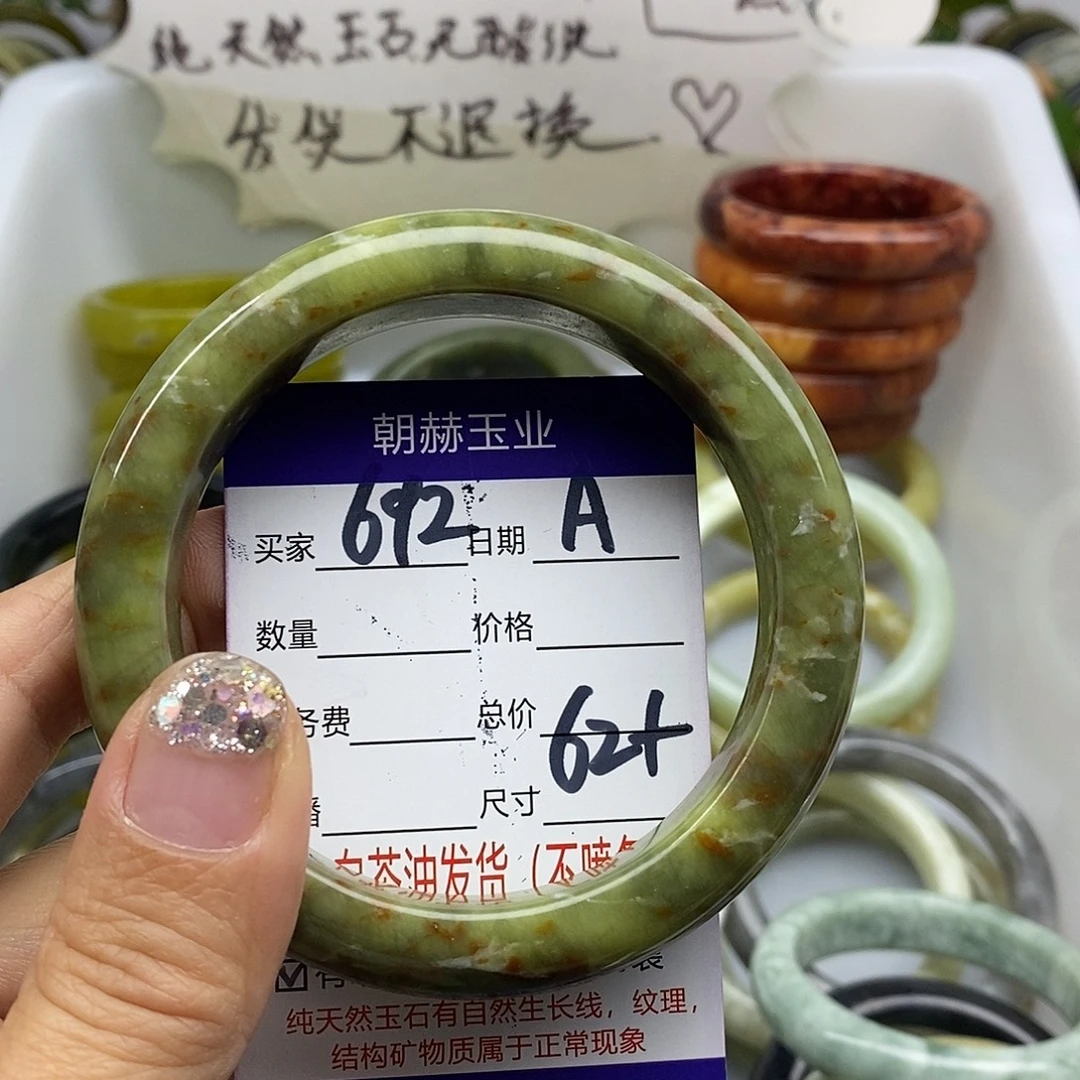 纯天然玉石无酸洗
售货不退换
朝赫玉业
买家 692 日期 A
数量 价格
务费 总价
62+
播 尺寸
白茶油发货（不喷
纯天然玉石有自然生长线，纹理，
结构矿物质属于正常现象